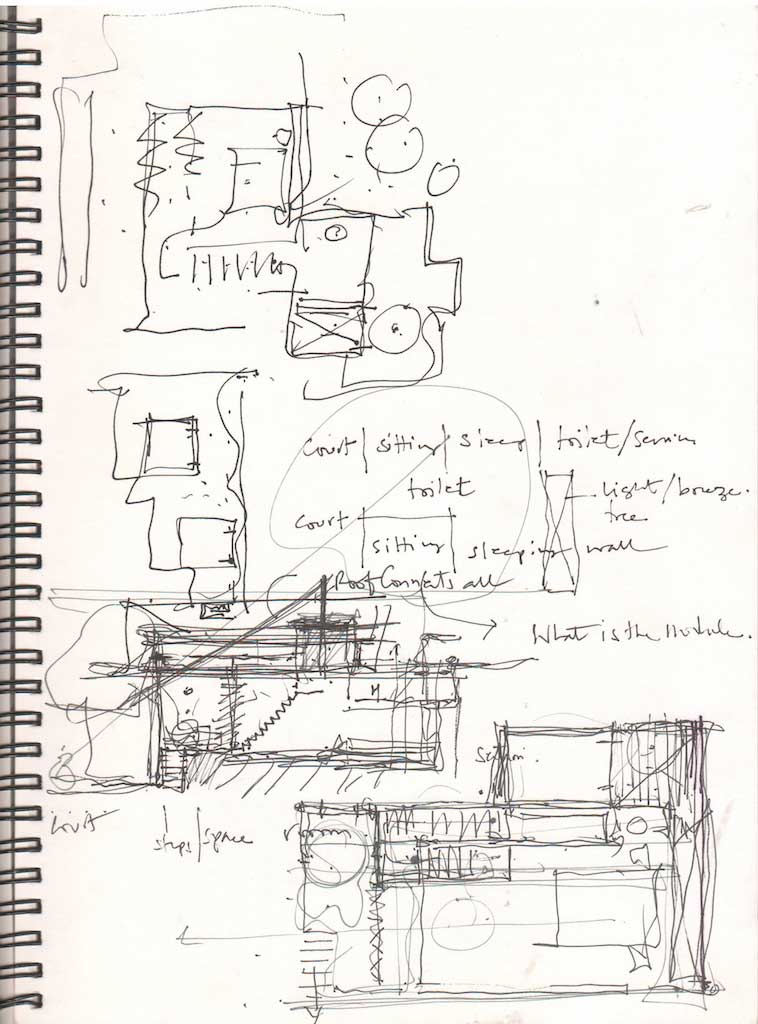 Court | sitting | sleep | toilet/service
toilet
light/breeze.
tree
Court
sitting | sleeping wall
Roof Connects all
What is the Module.
Section.
steps/space room